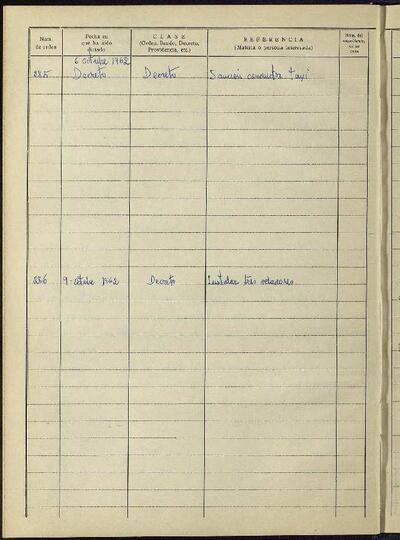 Núm. de orden
Fecha en que ha sido dictado
CLASE
(Orden, Bando, Decreto, Providencia, etc.)
REFERENCIA
(Materia o persona interesada)
Núm. del
6 octubre 1962
285 Decreto Decreto Sanción conductor taxi
286 9 octubre 1962 Decreto Instalar tres